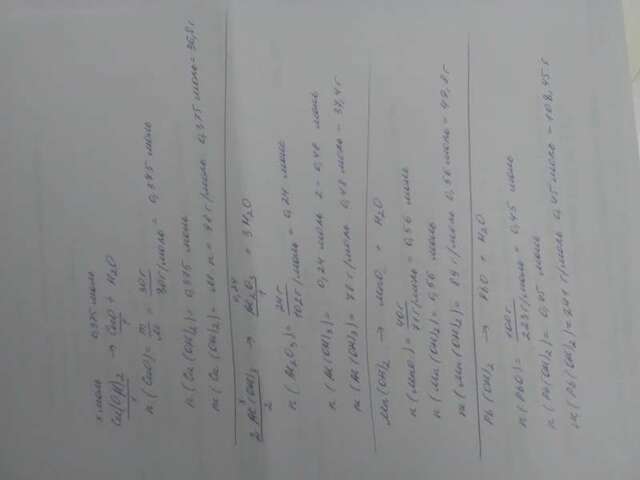 x моль 0,375 моль
Cu(OH)2 → CuO + H2O
1 1
n(CuO) = m/M = 30г / 80г/моль = 0,375 моль
n(Cu(OH)2) = 0,375 моль
m(Cu(OH)2) = M·n = 98г/моль · 0,375 моль = 36,8г
x 0,24
2Al(OH)3 → Al2O3 + 3H2O
2 1
n(Al2O3) = 24г / 102г/моль = 0,24 моль
n(Al(OH)3) = 0,24 моль · 2 = 0,48 моль
m(Al(OH)3) = 78г/моль · 0,48 моль = 37,4г
Mn(OH)2 → MnO + H2O
n(MnO) = 40г / 71г/моль = 0,56 моль
n(Mn(OH)2) = 0,56 моль
m(Mn(OH)2) = 89г/моль · 0,56 моль = 49,8г
Pb(OH)2 → PbO + H2O
n(PbO) = / 223г/моль = 0,45 моль
n(Pb(OH)2) = 0,45 моль
m(Pb(OH)2) = 241г/моль · 0,45 моль = 108,45г